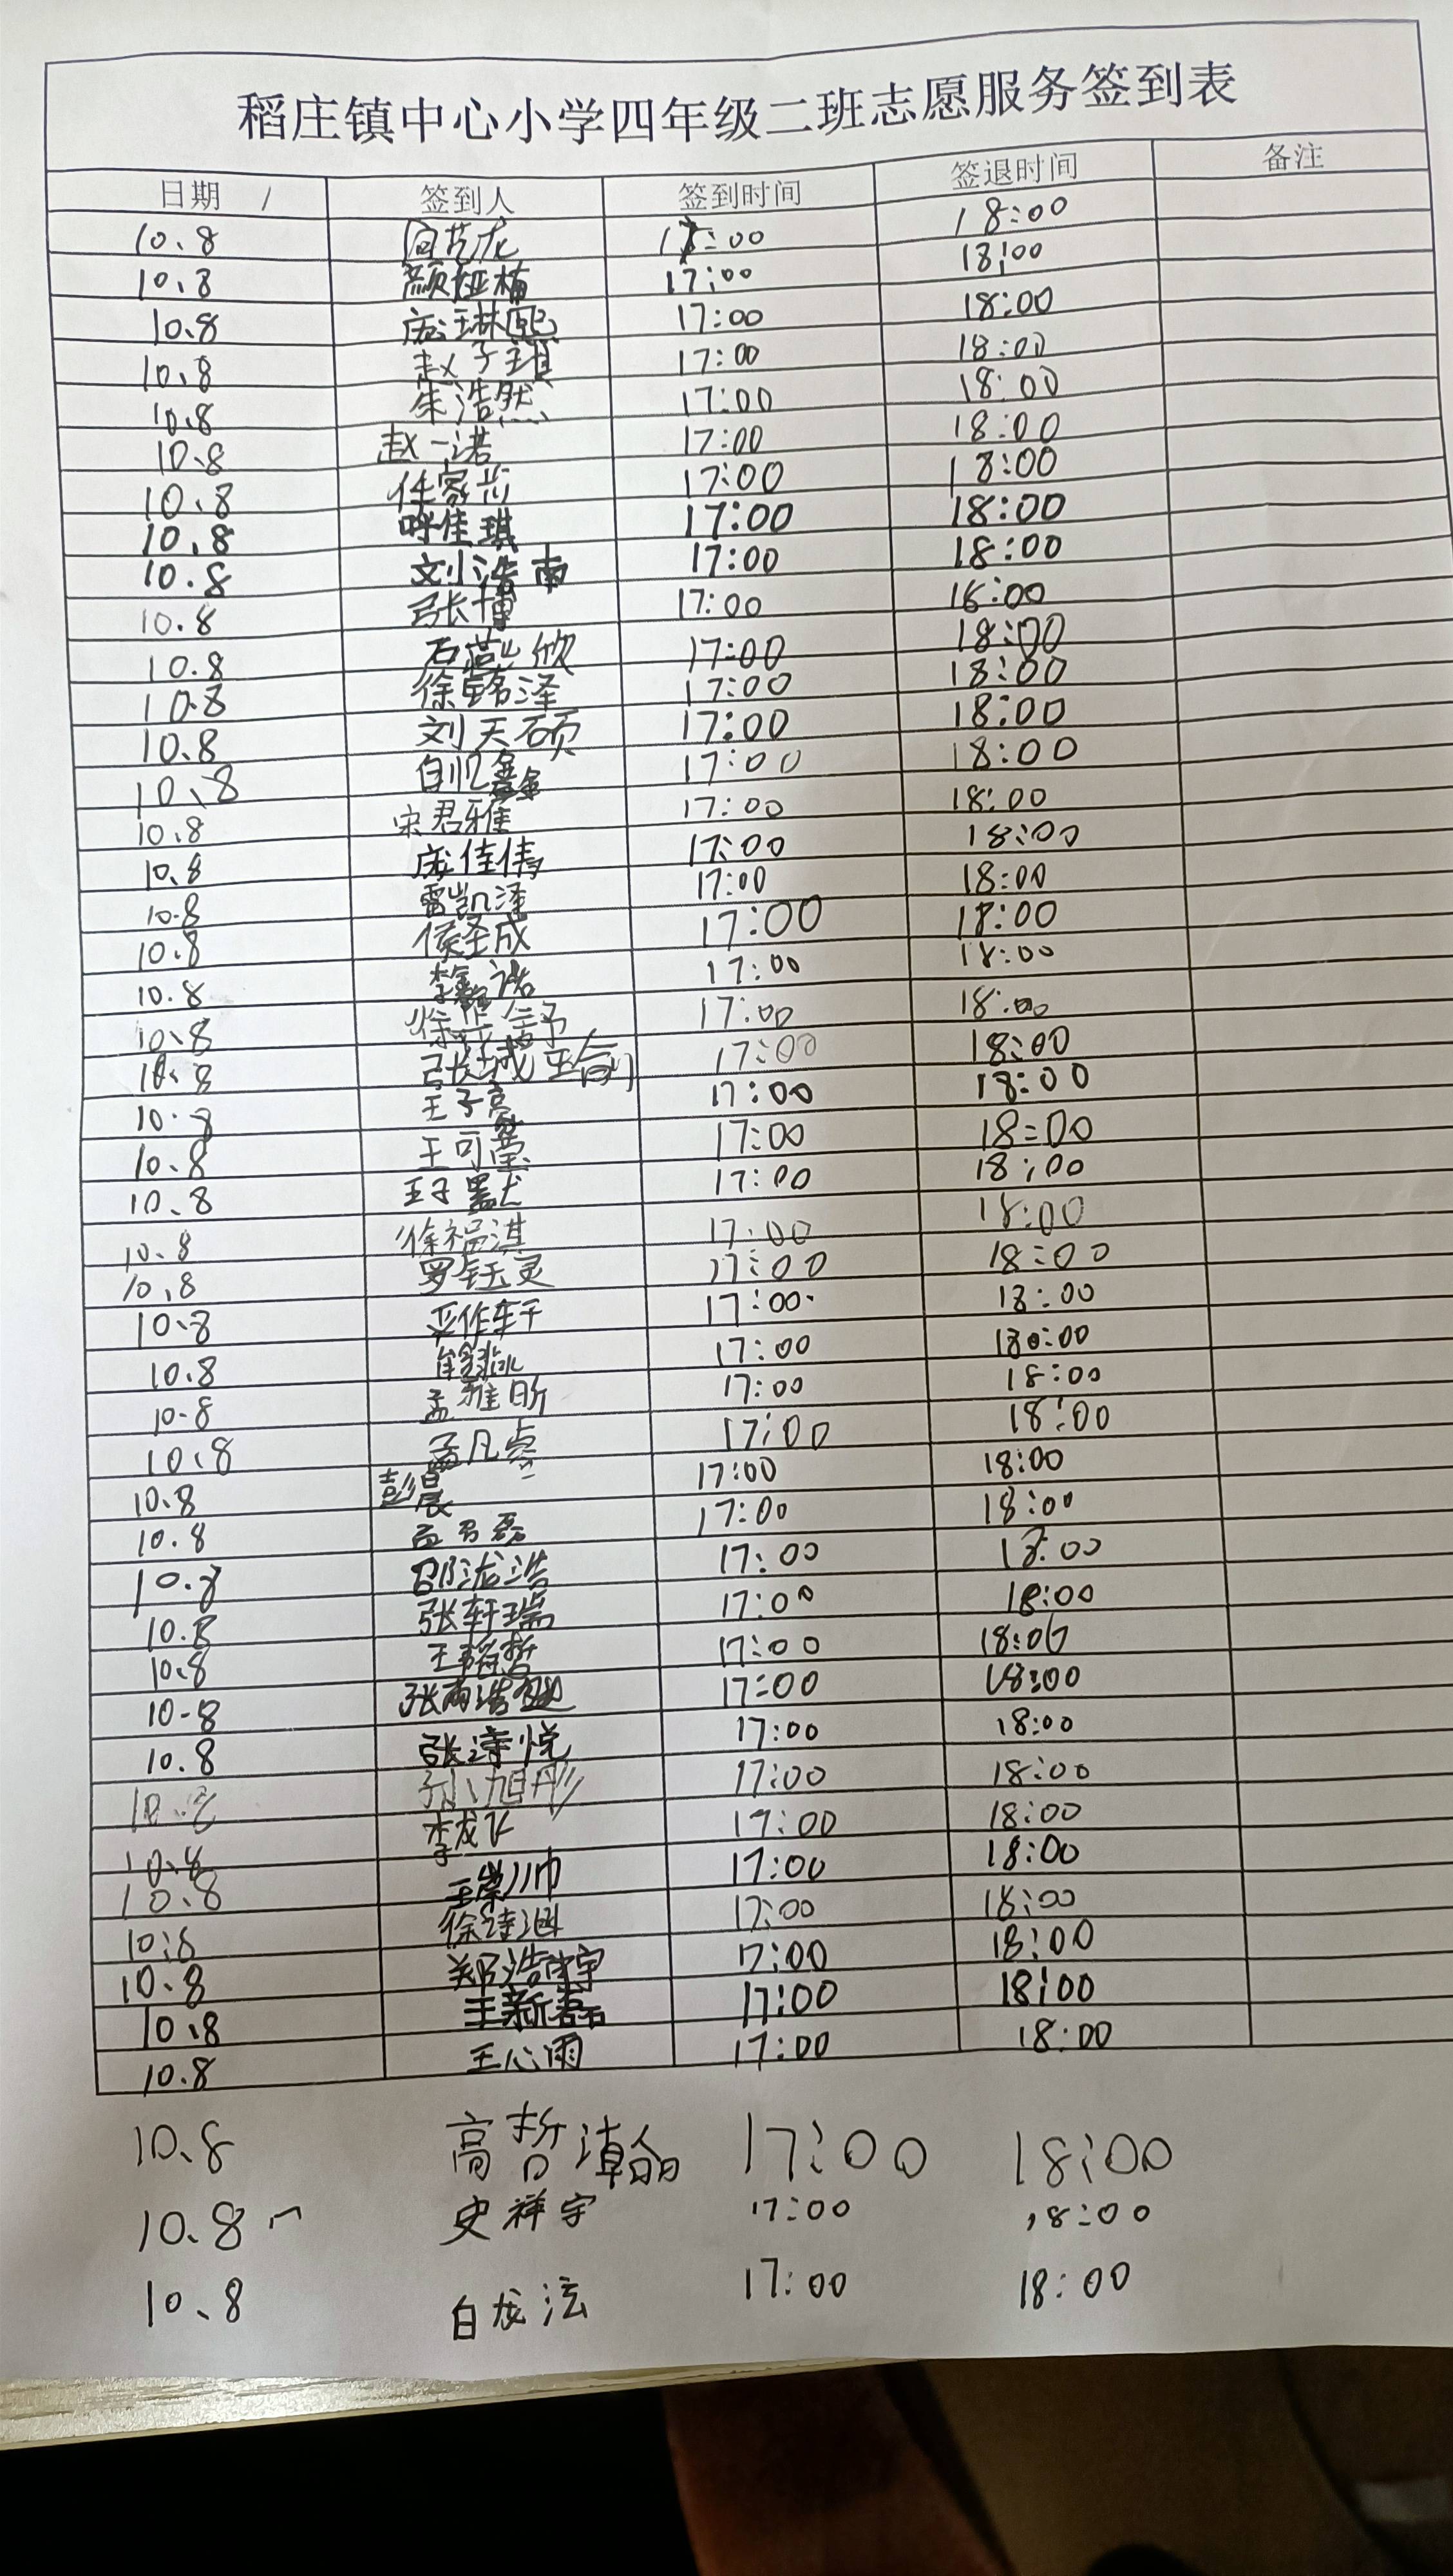 稻庄镇中心小学四年级二班志愿服务签到表
日期 签到人 签到时间 签退时间 备注
10.8 17:00 18:00
10.8 颜娅楠 17:00 18:00
10.8 庞琳熙 17:00 18:00
10.8 赵子琪 17:00 18:00
10.8 朱浩然 17:00 18:00
10.8 赵一诺 17:00 18:00
10.8 任家 17:00 18:00
10.8 呼佳琪 17:00 18:00
10.8 刘浩南 17:00 18:00
10.8 张博 17:00 16:00
10.8 石 欣 17:00 18:00
10.8 徐铭泽 17:00 18:00
10.8 刘天硕 17:00 18:00
10.8 白忆鑫 17:00 18:00
10.8 宋君雅 17:00 18:00
10.8 庞佳倩 17:00 18:00
10.8 雷凯泽 17:00 18:00
10.8 侯圣成 17:00 18:00
10.8 李 诺 17:00 18:00
10.8 徐 17:00 18:00
10.8 张城 17:00 18:00
10.8 王子豪 17:00 18:00
10.8 王可莹 17:00 18:00
10.8 王子 17:00 18:00
10.8 徐福淇 17:00 18:00
10.8 罗钰灵 17:00 18:00
10.8 作轩 17:00 18:00
10.8 17:00 180:00
10.8 孟雅昕 17:00 18:00
10.8 孟凡 17:00 18:00
10.8 彭晨 17:00 18:00
10.8 孟 磊 17:00 18:00
10.8 邵泷浩 17:00 18:00
10.8 张轩瑞 17:00 18:00
10.8 王 哲 17:00 18:00
10.8 张雨浩 17:00 18:00
10.8 张诗悦 17:00 18:00
10.8 孙旭彤 17:00 18:00
10.8 李龙飞 17:00 18:00
10.8 王 帅 17:00 18:00
10.8 徐诗涵 17:00 18:00
10.8 郑浩宇 17:00 18:00
10.8 王新磊 17:00 18:00
10.8 王心雨 17:00 18:00
10.8 高哲 17:00 18:00
10.8 史祥宇 17:00 18:00
10.8 白龙泫 17:00 18:00